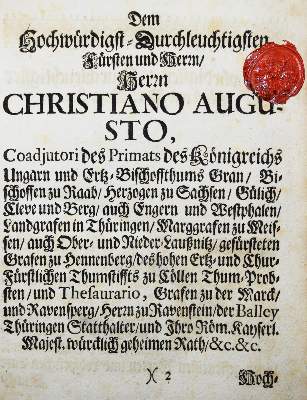 Dem
Hochwürdigst-Durchleuchtigsten
Fürsten und Herrn/
Herrn
CHRISTIANO AUGU-
STO,
Coadjutori des Primats des Königreichs
Ungarn und Ertz-Bischoffthums Gran/ Bi-
schoffen zu Raab/ Herzogen zu Sachsen/ Gülich/
Cleve und Berg/ auch Engern und Westphalen/
Landgrafen in Thüringen/ Marggrafen zu Meis-
sen/ auch Ober- und Nieder-Laußnitz/ gefürsteten
Grafen zu Hennenberg/ des hohen Ertz- und Chur-
Fürstlichen Thumstiffts zu Cöllen Thum-Prob-
sten/ und Thesaurario, Grafen zu der Marck/
und Ravensperg/ Herrn zu Ravenstein/ der Balley
Thüringen Statthalter/ und Ihro Röm. Kayserl.
Majest. würcklich geheimen Rath/ &c. &c.
)( 2
Hoch-